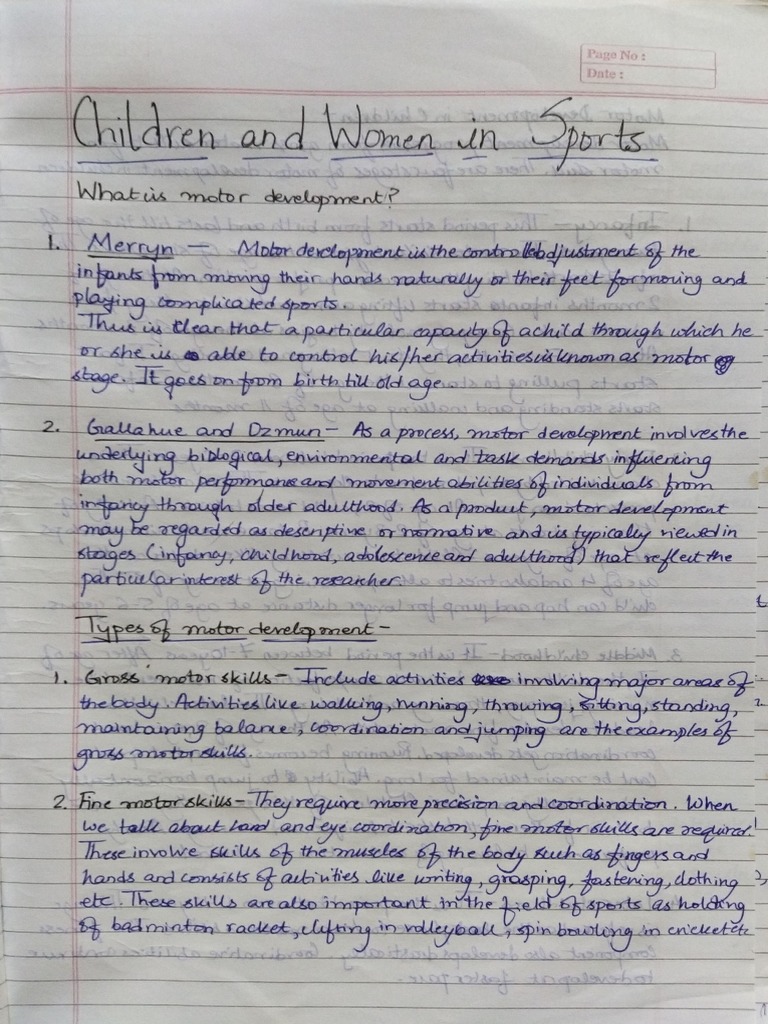 Page No :
Date :
Children and Women in Sports
What is motor development?
1. Merryn — Motor development is the controlled adjustment of the
infants from moving their hands naturally or their feet for moving and
playing complicated sports.
Thus is clear that a particular capacity of a child through which he
or she is able to control his/her activities is known as motor
stage. It goes on from birth till old age.
2. Gallahue and Ozmun - As a process, motor development involves the
underlying biological, environmental and task demands influencing
both motor performance and movement abilities of individuals from
infancy through older adulthood. As a product, motor development
may be regarded as descriptive or normative and is typically viewed in
stages (infancy, childhood, adolescence and adulthood) that reflect the
particular interest of the researcher.
Types of motor development -
1. Gross motor skills - Include activities involving major areas of
the body. Activities live walking, running, throwing, sitting, standing,
maintaining balance, coordination and jumping are the examples of
gross motor skills.
2. Fine motor skills - They require more precision and coordination. When
we talk about hand and eye coordination, fine motor skills are required.
These involve skills of the muscles of the body such as fingers and
hands and consists of activities live writing, grasping, fastening, clothing
etc. These skills are also important in the field of sports as holding
of badminton racket, clifting in volleyball, spin bowling in cricket etc